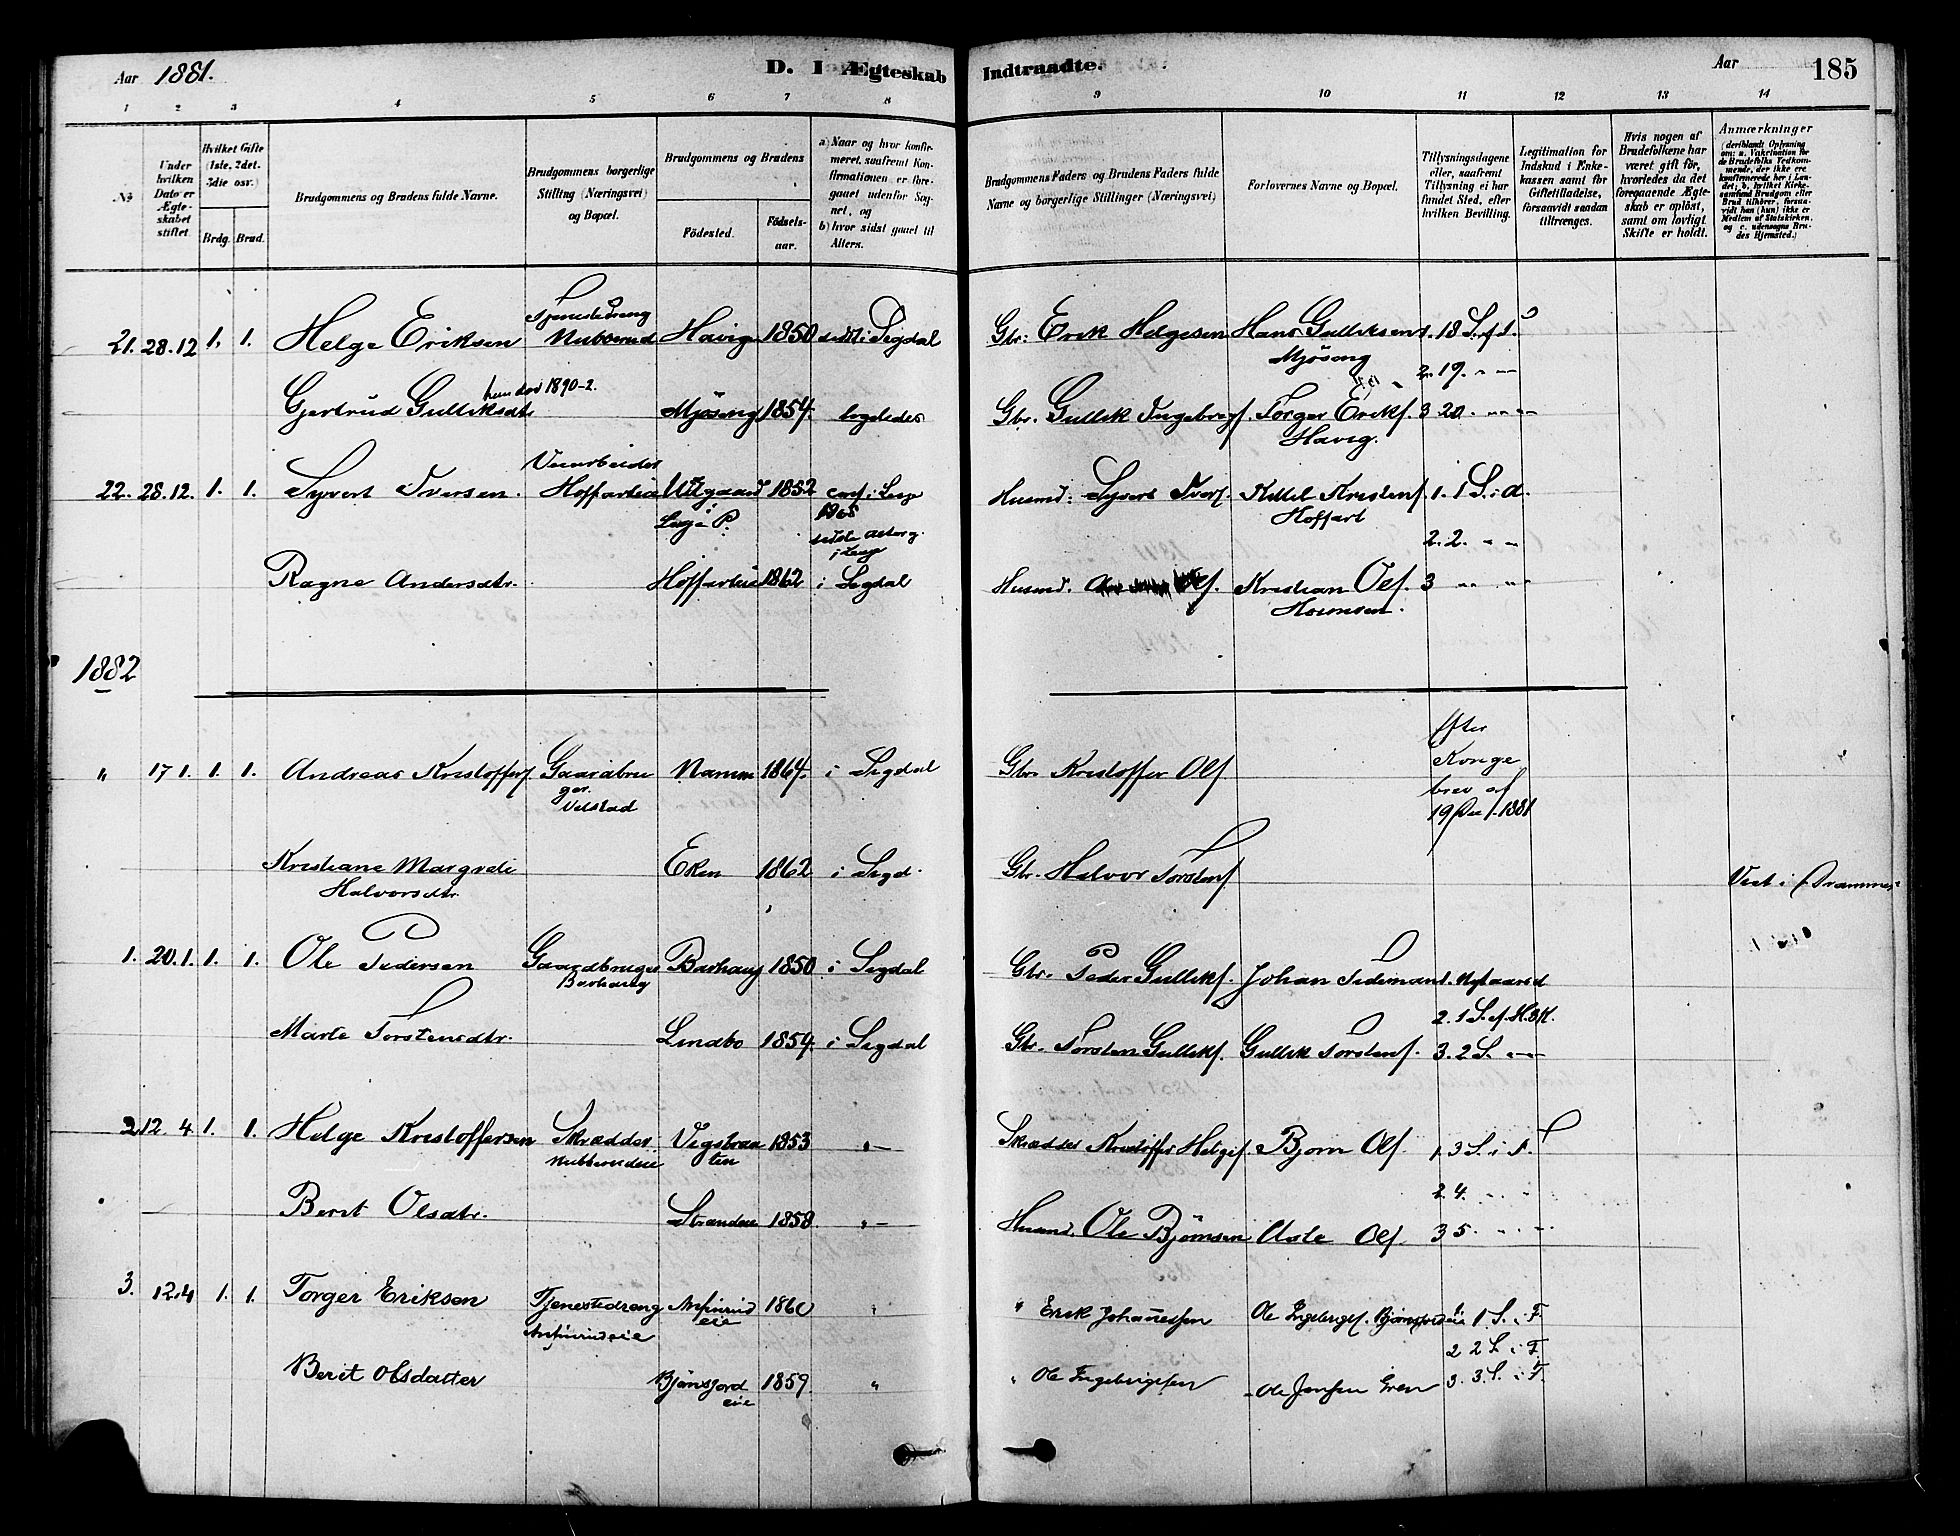 Aar 1881. D. I Ægteskab Indtraadte. Aar 185
1 2 3 4 5 6 7 8 9 10 11 12 13 14
No
Under hvilken Dato er Ægteskabet stiftet.
Hvilket Gifte (1ste, 2det, 3die osv.)
Brdg. Brud.
Brudgommens og Brudens fulde Navne.
Brudgommens borgerlige Stilling (Næringsvei) og Bopæl.
Brudgommens og Brudens
Födested. Födselsaar.
a) Naar og hvor konfirmeret, saafremt Konfirmationen er foregaaet udenfor Sognet, og
b) hvor sidst gaaet til Alters.
Brudgommens Faders og Brudens Faders fulde Navne og borgerlige Stillinger (Næringsvei)
Forlovernes Navne og Bopæl.
Tillysningsdagene eller, saafremt Tillysning ei har fundet Sted, efter hvilken Bevilling.
Legitimation for Indskud i Enkekassen samt for Giftetilladelse, forsaavidt saadan tiltrænges.
Hvis nogen af Brudefolkene har været gift før, hvorledes da det foregaaende Ægteskab er opløst, samt om lovligt Skifte er holdt.
Anmærkninger (deriblandt Oplysning om: a. Vakcination for de Brudefolks Vedkommende, der ikke ere konfirmerede her i Landet; b. hvilket Kirkesamfund Brudgom eller Brud tilhører, forsaavidt han (hun) ikke er Medlem af Statskirken, og c. udensogns Brudes Hjemsted.)
21. 28.12 1. 1. Helge Eriksen Tjenestedreng Nubberud Havig 1850 sidst i Sigdal Gbr: Erik Helgesen Hans Gulliksen Mjösong 1. 18 S. e. T.
hun død 1890-2.
2. 19. " "
Gjertrud Gulliksdtr Mjösong 1854. ligeledes Gbr. Gullik Ingebregs. Torger Eriks. Havig. 3 20. " "
22. 28.12. 1. 1. Syvert Iversen. Veiarbeider Hoffarteie Utgaard i Lesje P. 1852 conf. i Lesje 1868 sidste Altarg. i Lesje Husmd: Syvert Ivers. Kittil Kristens. Hoffart 1. 1 S. i A.
2. 2. " "
Ragne Andersdtr. Hoffarteie 1862 i Sigdal Husmd. Ols. Kristian Ols. 3 " "
1882
" 17 1. 1. 1. Andreas Kristoffers. Gaardbruger Velstad Namm 1864. i Sigdal Gbr Kristoffer Ols. Efter Kongebrev af 19 Dec. 1881
Kristiane Margrete Halvorsdtr. Eken 1862 i Sigd. Gbr. Halvor Torstens. Viet i Drammen
1. 20.1. 1. 1. Ole Pedersen Gaardbruger Barhaug Barhaug 1850 i Sigdal Gbr. Peder Gulliks. Johan Tidemans. 1. Nytaarsd
2. 1 S. e. H.3K.
Marte Torstensdtr. Lindbo 1854. i Sigdal Gbr. Torsten Gulliks. Gullik Torstens. 3. 2 S. " "
2 12. 4 1. 1. Helge Kristoffersen Skrædder Nubberudeie Vegsbraaten 1853 " Skrædder Kristoffer Helges. Bjørn Ols. 1. 3 S. i F.
2 4. " "
Berit Olsdtr. Strandeie 1858 " Husmd. Ole Bjørnsen Asle Ols. 3 5. " "
3. 12.4 1. 1. Torger Eriksen Tjenestedreng Anfinrudeie Anfinrudeie 1860 " " Erik Johannessen Ole Ingebrigts. Bjørnsfjordeie 1. 1 S. i F.
2 2 S. i F.
Berit Olsdatter Bjönsfjordeie 1859. " " Ole Ingebrigtsen Ole Jensen Gren 3. 3 S. i F.